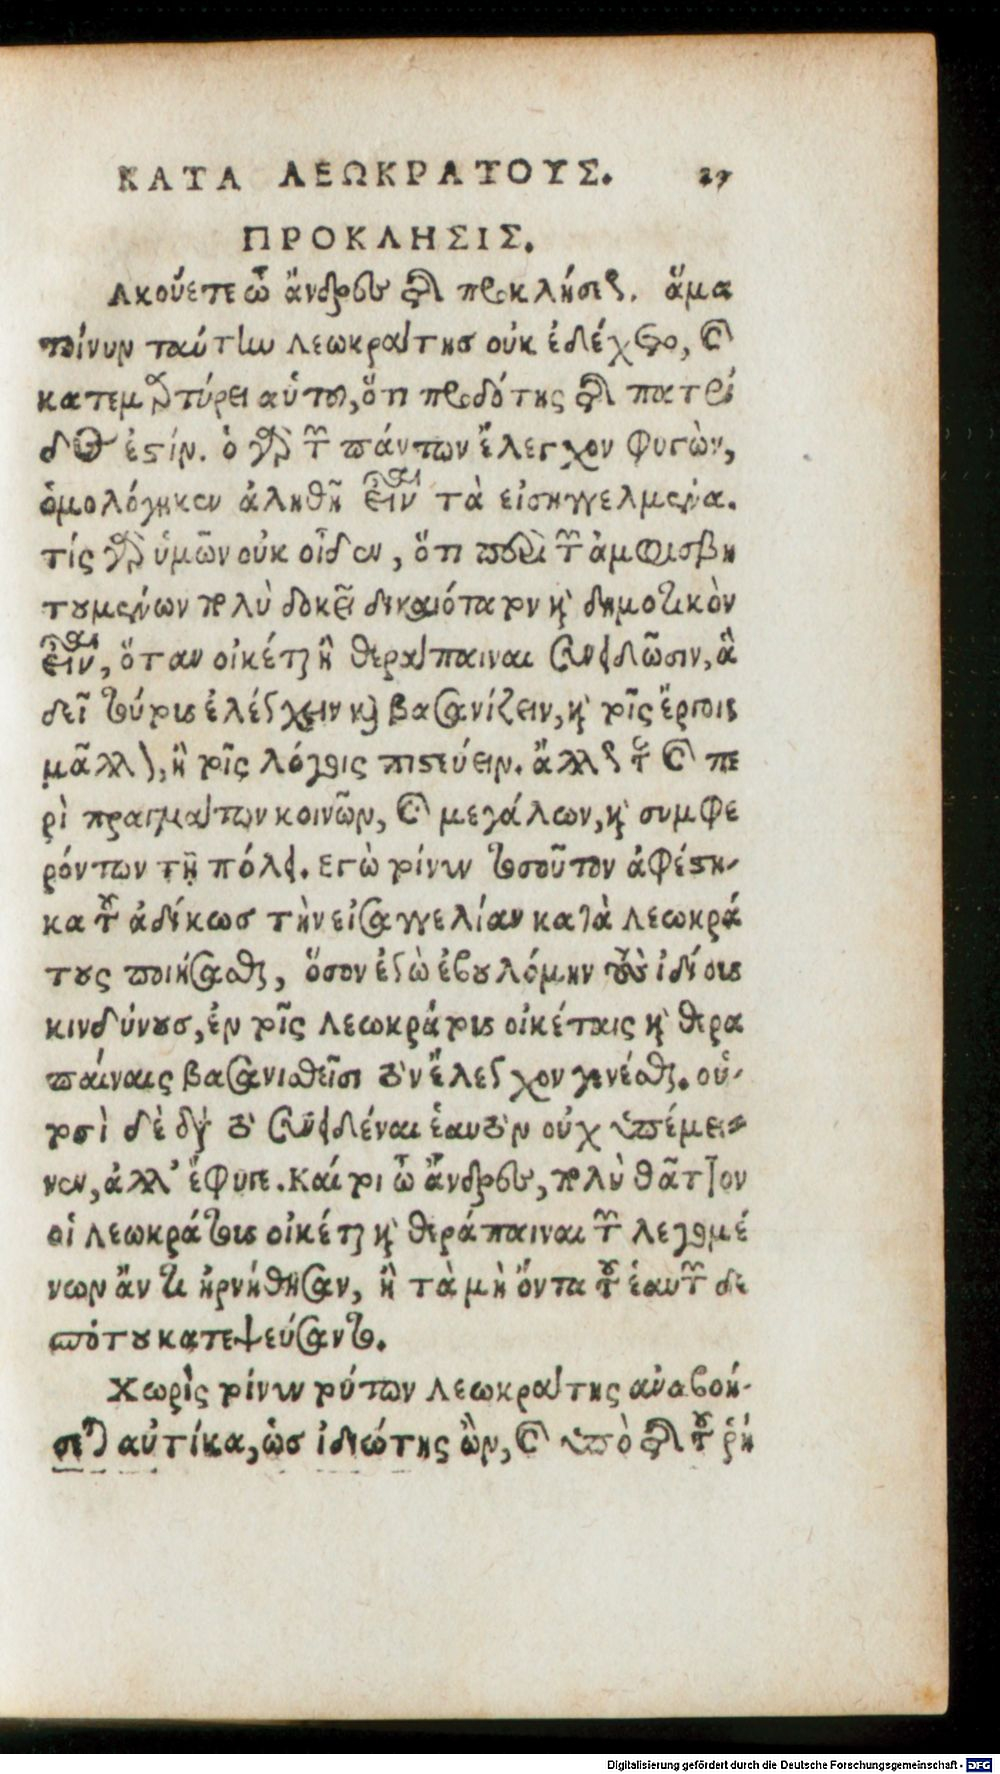 ΚΑΤΑ ΛΕΩΚΡΑΤΟΥΣ. 29
ΠΡΟΚΛΗΣΙΣ.
Ακούετε ὦ ἄνδρες τῆς προκλήσεως. ἅμα
τοίνυν ταύτην λεωκράτης οὐκ ἐδέχετο, καὶ
κατεμαρτύρει αὑτοῦ, ὅτι προδότης τῆς πατρί
δος ἐστίν. ὁ γὰρ τὸν πάντων ἔλεγχον φυγὼν,
ὡμολόγηκεν ἀληθῆ εἶναι τὰ εἰσηγγελμένα.
τίς γὰρ ὑμῶν οὐκ οἶδεν, ὅτι περὶ τῶν ἀμφισβη
τουμένων πολὺ δοκεῖ δικαιότατον καὶ δημοτικὸν
εἶναι, ὅταν οἰκέται ἢ θεράπαιναι συνειδῶσιν, ἃ
δεῖ τούτους ἐλέγχειν καὶ βασανίζειν, καὶ τοῖς ἔργοις
μᾶλλον, ἢ τοῖς λόγοις πιστεύειν. ἄλλως τε καὶ πε
ρὶ πραγμάτων κοινῶν, καὶ μεγάλων, καὶ συμφε
ρόντων τῇ πόλει. Εγὼ τοίνυν τοσοῦτον ἀφέστη-
κα τοῦ ἀδίκως τὴν εἰσαγγελίαν κατὰ λεωκρά
τους ποιήσασθαι, ὅσον ἐγὼ ἐβουλόμην τοῖς ἰδίοις
κινδύνους, ἐν τοῖς λεωκράτους οἰκέταις καὶ θερα
παίναις βασανισθεῖσι τὸν ἔλεγχον γενέσθαι. οὑ-
τοσὶ δὲ διὰ τὸ συνειδέναι ἑαυτὸν οὐχ ὑπέμει-
νεν, ἀλλ' ἔφυγε. Καίτοι ὦ ἄνδρες, πολὺ θᾶττον
οἱ λεωκράτους οἰκέται καὶ θεράπαιναι τῶν λεγομέ
νων ἄν τι ἠρνήθησαν, ἢ τὰ μὴ ὄντα τοῦ ἑαυτῶν δε
σπότου κατεψεύσαντο.
Χωρὶς τοίνυν τούτων λεωκράτης ἀναβοή-
σεται αὐτίκα, ὡς ἰδιώτης ὢν, καὶ ὑπὸ τῆς τοῦ ῥή
Digitalisierung gefördert durch die Deutsche Forschungsgemeinschaft - DFG